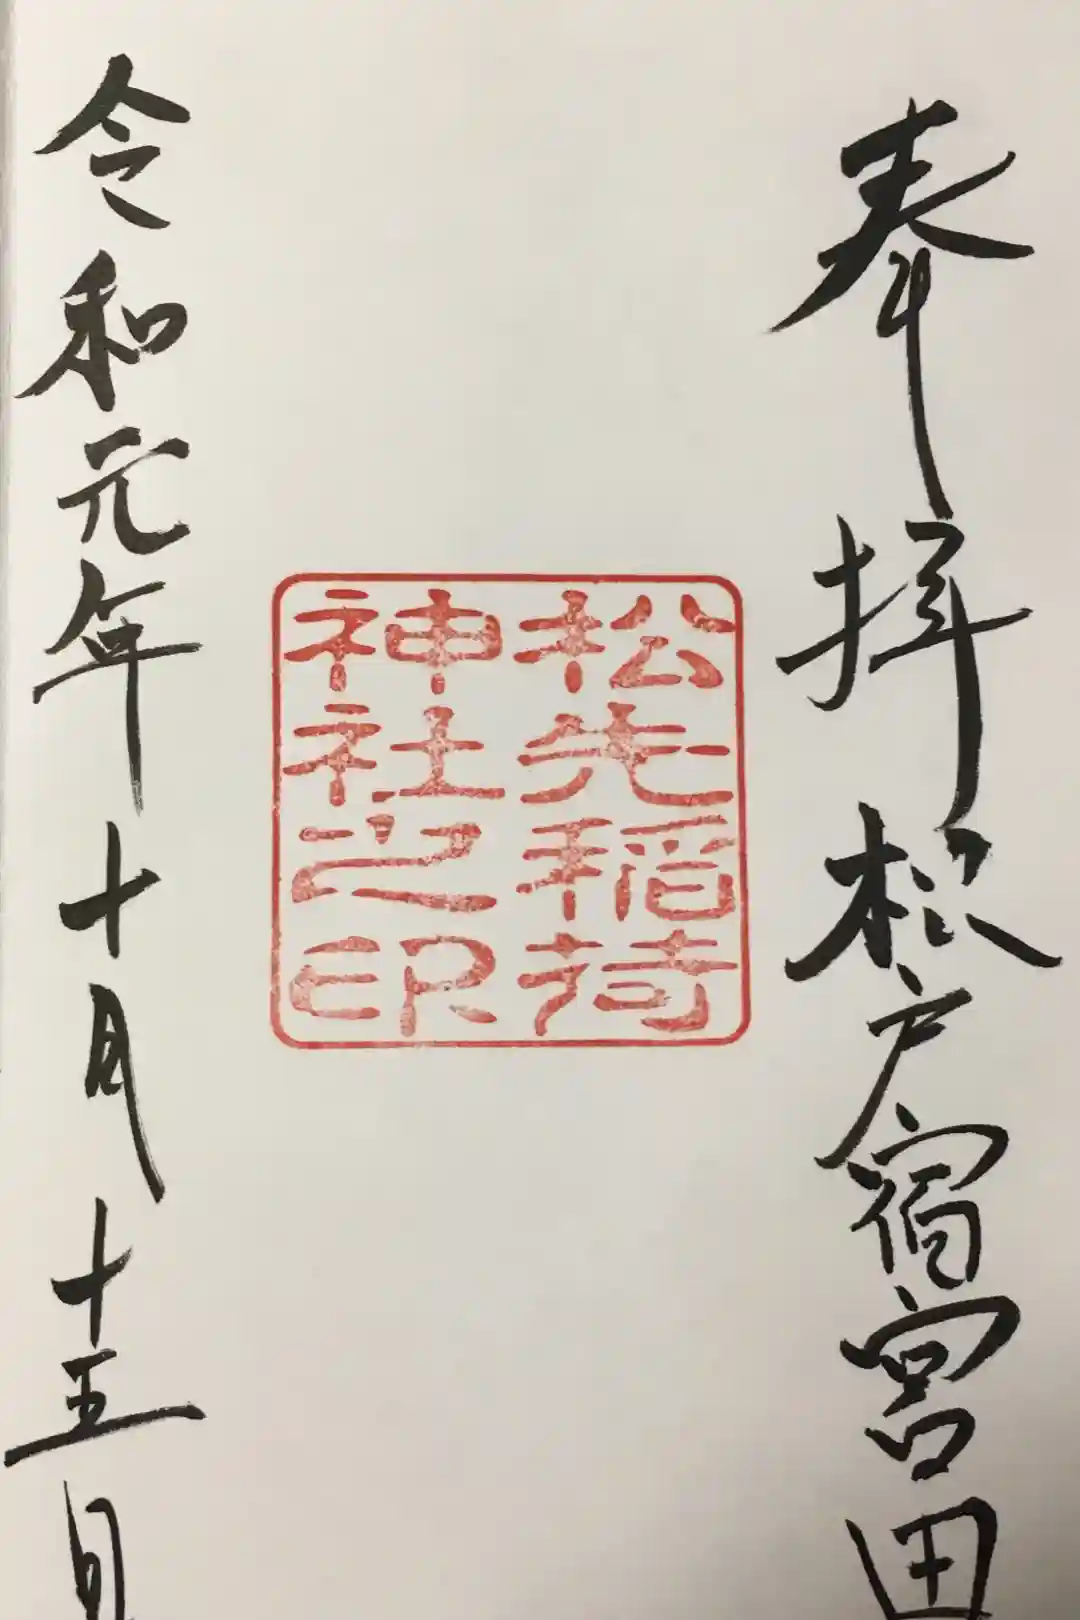 奉拝松戸宿宮田
松先稲荷
神社之印
令和元年十月十五日